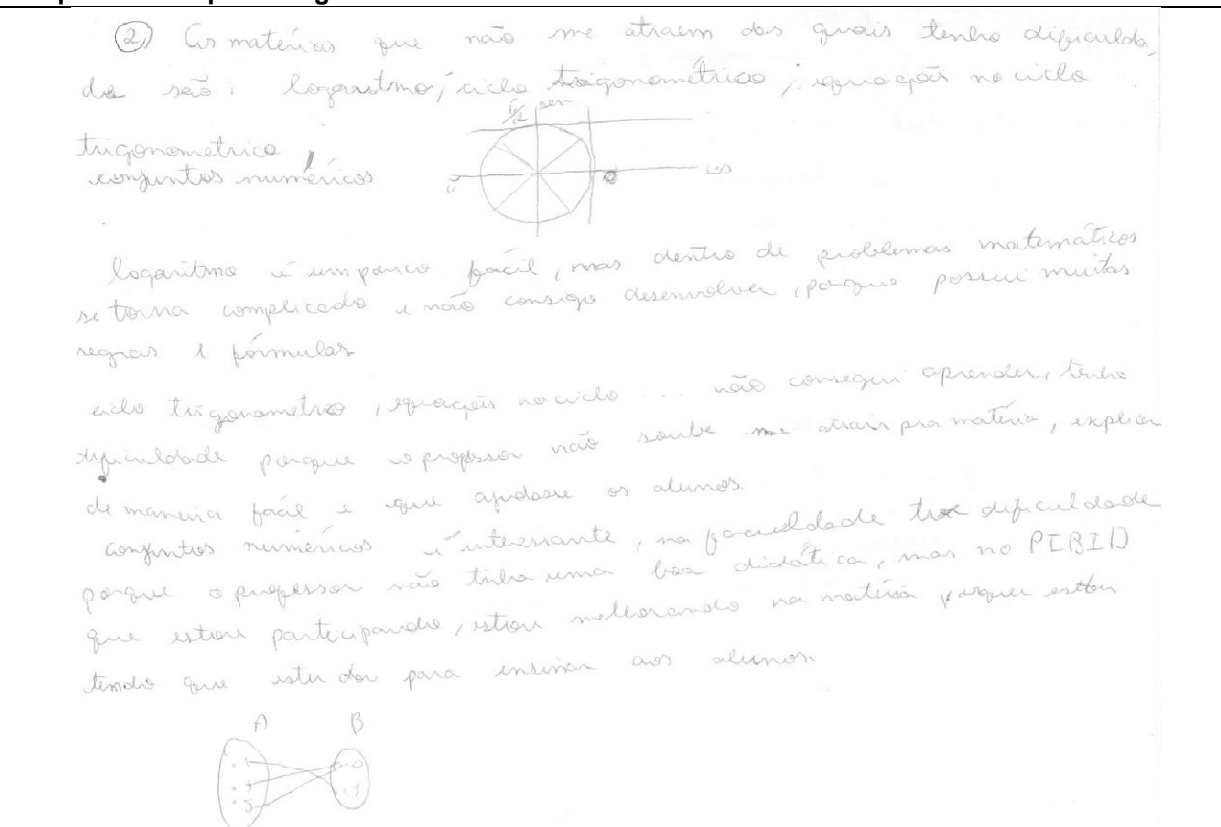 2) As matérias que não me atraem das quais tenho dificulda
de são: logaritmo, ciclo trigonométrico, equações no ciclo
π/2 sen
trigonometrico,
conjuntos numéricos
π cos
logaritmo é um pouco fácil, mas dentro de problemas matemáticos
se torna complicado e não consigo desenvolver, porque possui muitas
regras e fórmulas
ciclo trigonometrico, equações no ciclo ... não consegui aprender, tenho
dificuldade porque o professor não soube me atrair pra matéria, explicar
de maneira fácil e que ajudasse os alunos.
conjuntos numéricos é interessante, na faculdade tive dificuldade
porque o professor não tinha uma boa didática, mas no PIBID
que estou participando, estou melhorando na matéria porque estou
tendo que estudar para ensinar aos alunos.
A B
.1 .0
.1
.5